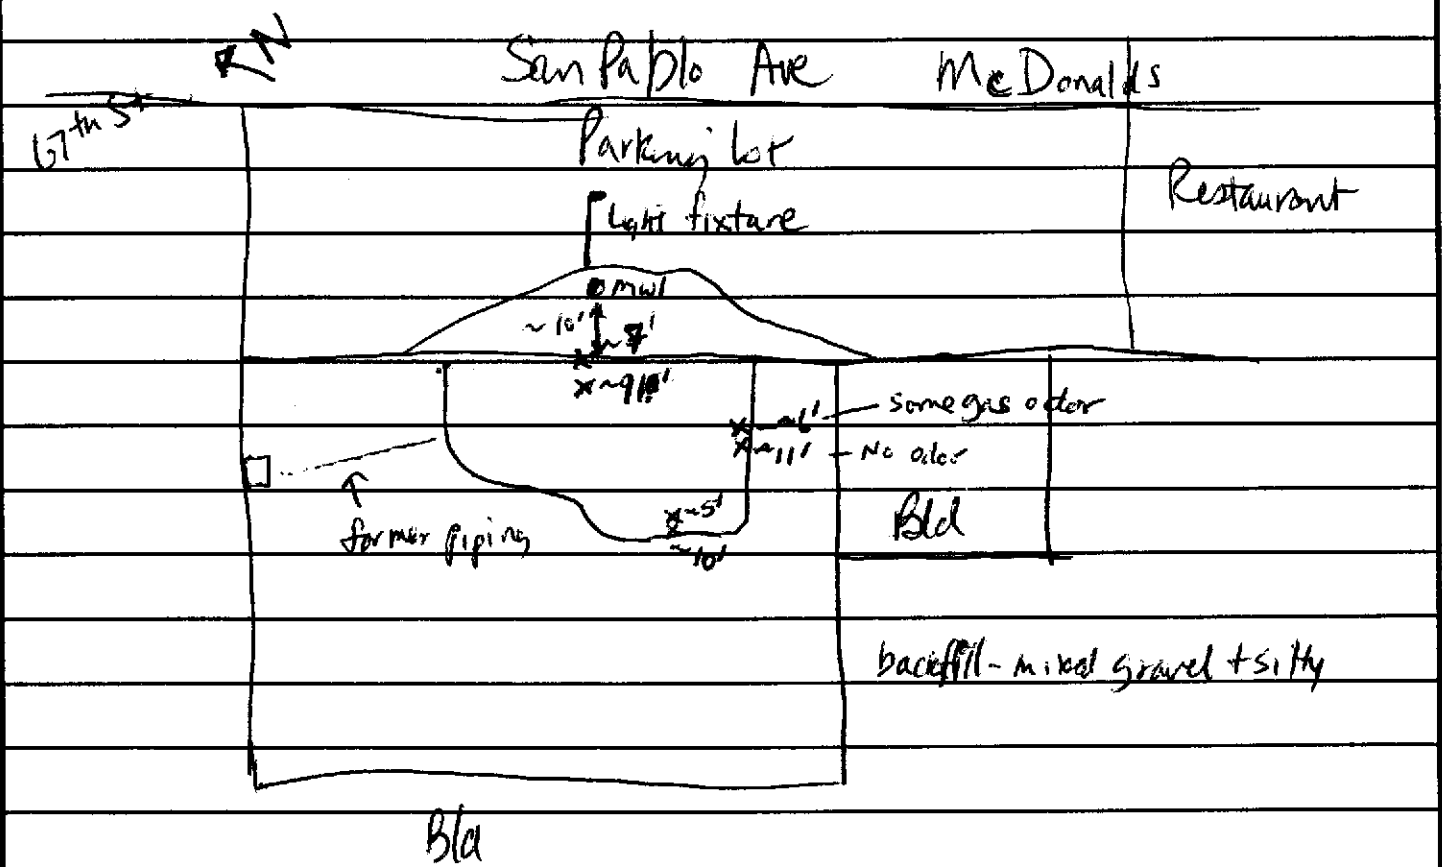 N
San Pablo Ave McDonalds
67th St
Parking lot
Restaurant
Light fixture
MW1
~10'
~7'
x~9
x~6' - some gas odor
x~11' - No odor
x~5'
~10'
Bld
former piping
backfill - mixed gravel + silty
Bld